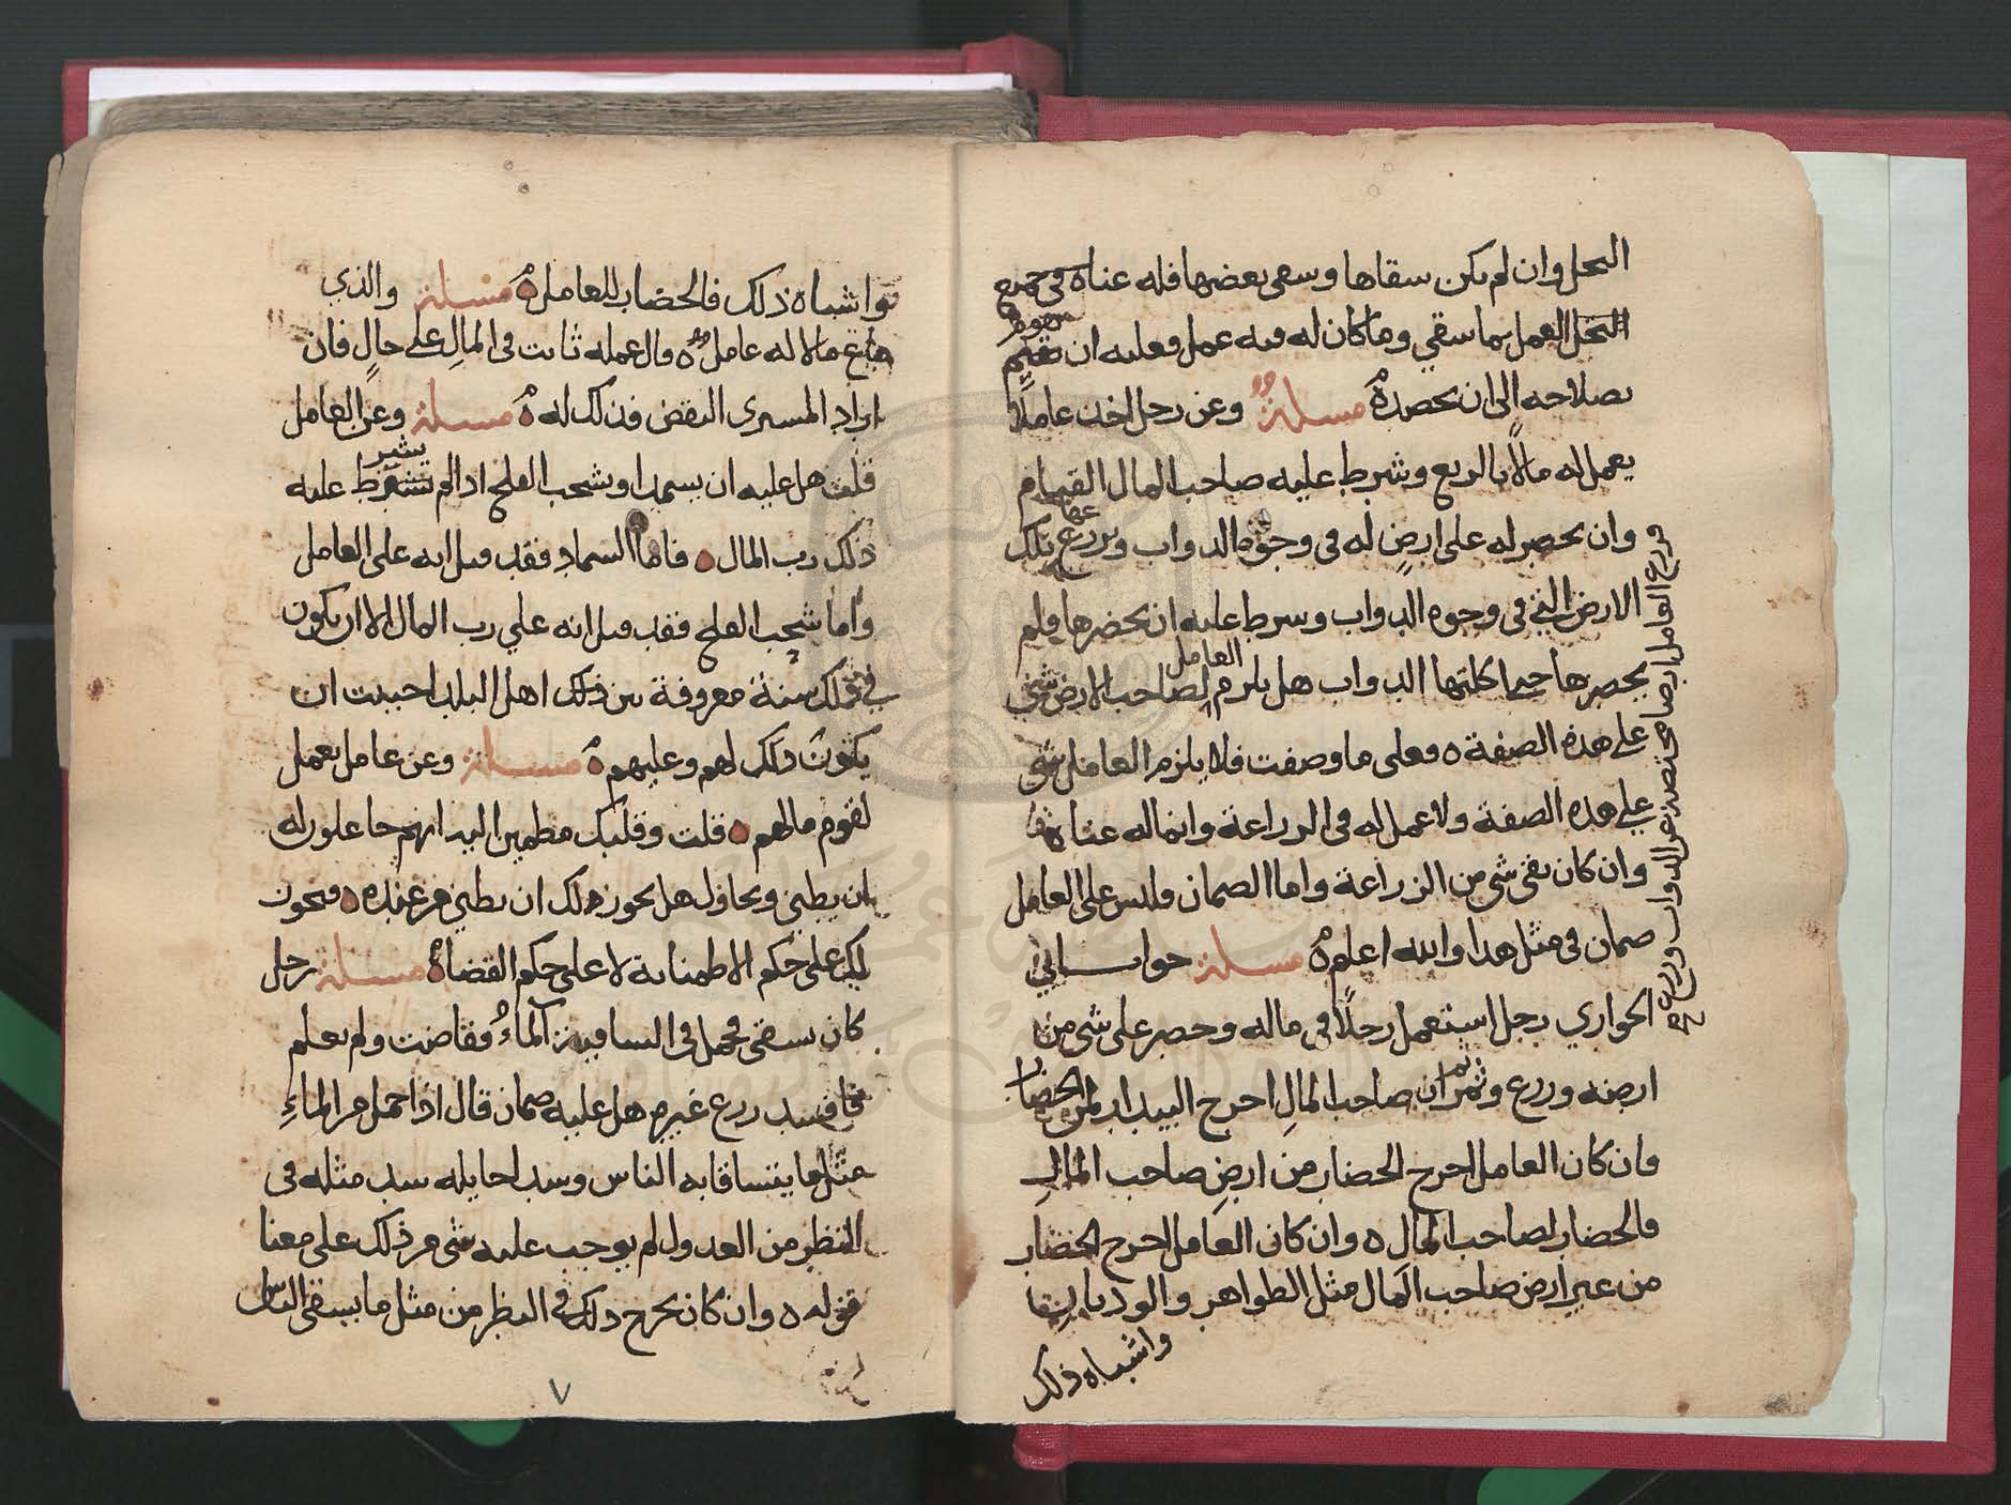 النخل وان لم يكن سقاها وسقى بعضها فله عناه في جميع
النخل العمل بما سقي وما كان له فيه عمل وعليه ان يقوم
بصلاحه الى ان يحصده مسلة وعن رجل اخذ عاملا
يعمل له مالا بالربع وشرط عليه صاحب المال القيام
وان يحضر له على ارض له في وجوه الدواب ويزرع تلك
الارض التي في وجوه الدواب وشرط عليه ان يحضرها فلم
يحضرها حتى اكلتها الدواب هل يلزم العامل لصاحب الارض شي
على هذه الصفة ه فعلى ما وصفت فلا يلزم العامل شي
على هذه الصفة ولا عمل له في الزراعة وانما له عناه
وان كان بقى شي من الزراعة واما الضمان فليس على العامل
ضمان في مثل هذا والله اعلم ه مسلة جواب ابي
الحواري رجل استعمل رجلا في ماله وحضر على شي من
ارضه وزرع وثمر ثم ان صاحب المال اخرج البيدار لمن الحضار
فان كان العامل اخرج الحضار من ارض صاحب المال
فالحضار لصاحب المال ه وان كان العامل اخرج الحضار
من غير ارض صاحب المال مثل الظواهر والوديان
واشباه ذلك
وزرع العامل ارضا
عن الدواب وزرع
واشباه ذلك فالحضار للعامل ه مسلة والذي
باع مالا له عامل ه قال عمله ثابت في المال على حال فان
اراد المسترى النقض فذلك له ه مسلة وعن العامل
قلت هل عليه ان يسمد او يشحب الفلج اذا لم يشترط عليه
ذلك رب المال ه فاما السماد فقد قيل انه على العامل
واما شحب الفلج فقد قيل انه علي رب المال الا ان يكون
في ذلك سنة معروفة بين ذلك اهل البلد احببت ان
يكون ذلك لهم وعليهم ه مسلة وعن عامل يعمل
لقوم مالهم ه قلت وقلبك مطمين اليه انهم جاعلون له
ان يطني ويحاول هل يجوز ذلك ان يطني من عنده ه فيجوز
ذلك على حكم الاطمنانة لا على حكم القضاه مسلة رجل
كان يسقى فحمل في الساقية الماء ففاضت ولم يعلم
فافسد زرع غيره هل عليه ضمان قال اذا حمل من الماء
مثل ما يتساقا به الناس وسد اجايله سد مثله في
النظر من العدول لم يوجب عليه شي من ذلك على معنا
قوله ه وان كان يخرج ذلك في النظر من مثل ما يسقى الناس
٧